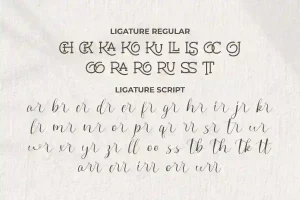 LIGATURE REGULAR
CH CK KA KO KU LL IS OC OJ
OO RA RO RU SS TT
LIGATURE SCRIPT
ar br cr dr er fr gr hr ir jr kr
lr mr nr or pr qr rr sr tr ur
wr xr yr zr ll oo ss tb th tk tt
arr err irr orr urr